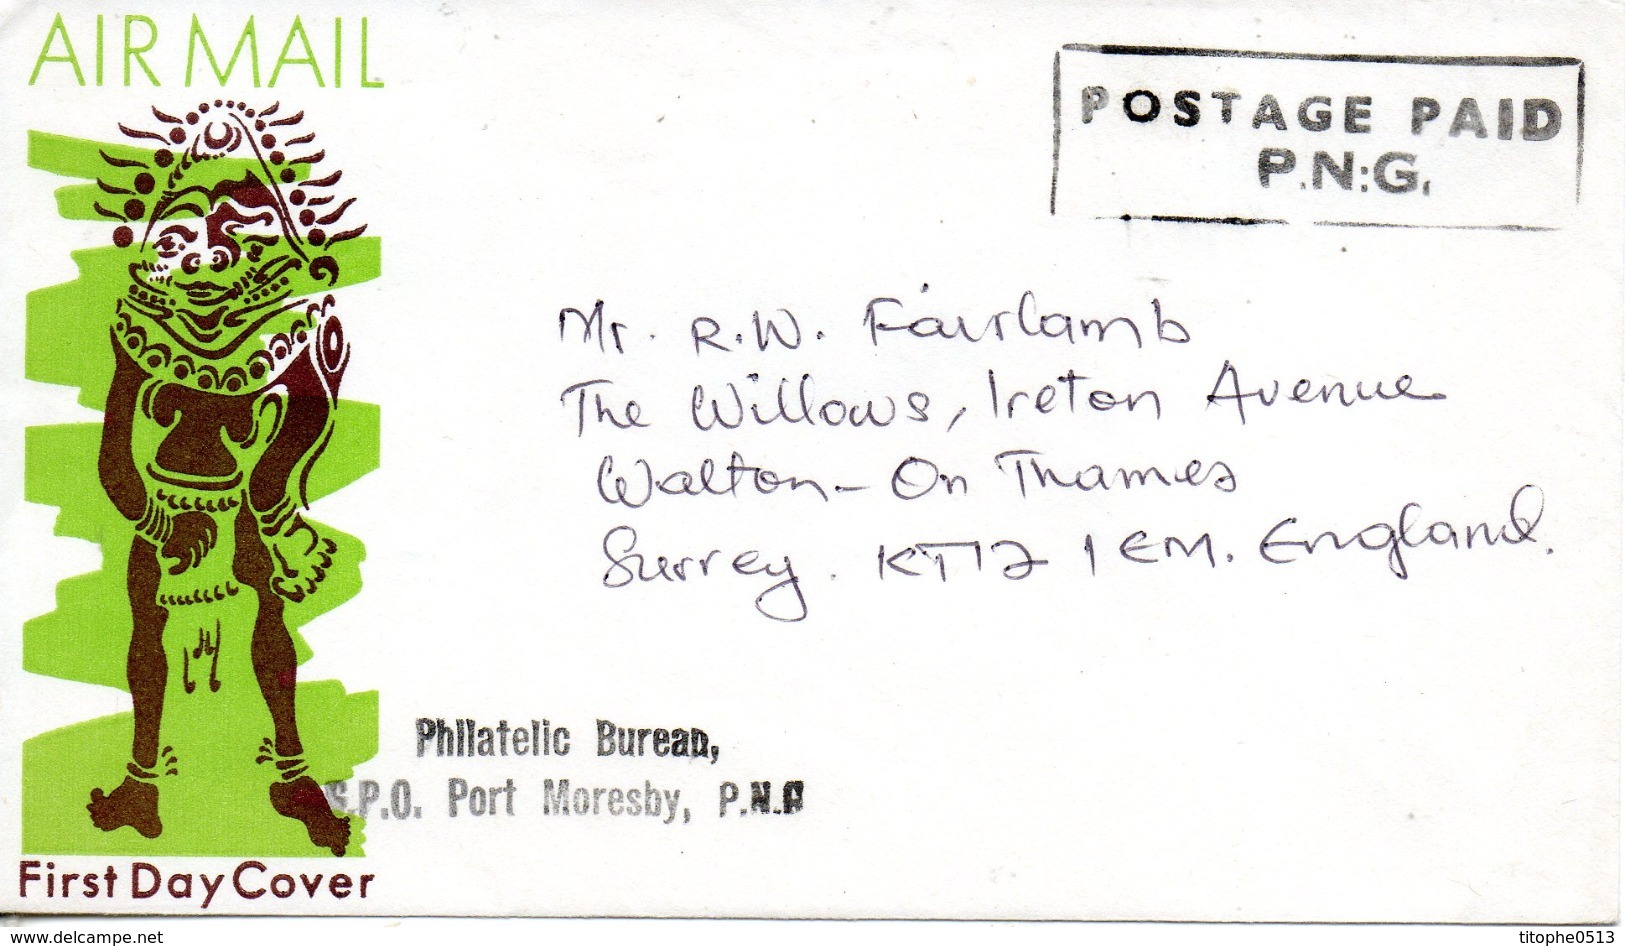 AIR MAIL
POSTAGE PAID
P.N.G.
Mr. R.W. Fairlamb
The Willows, Ireton Avenue
Walton-On Thames
Surrey. KT12 1EM. England.
Philatelic Bureau,
G.P.O. Port Moresby, P.N.G
First Day Cover
www.delcampe.net
titophe0513